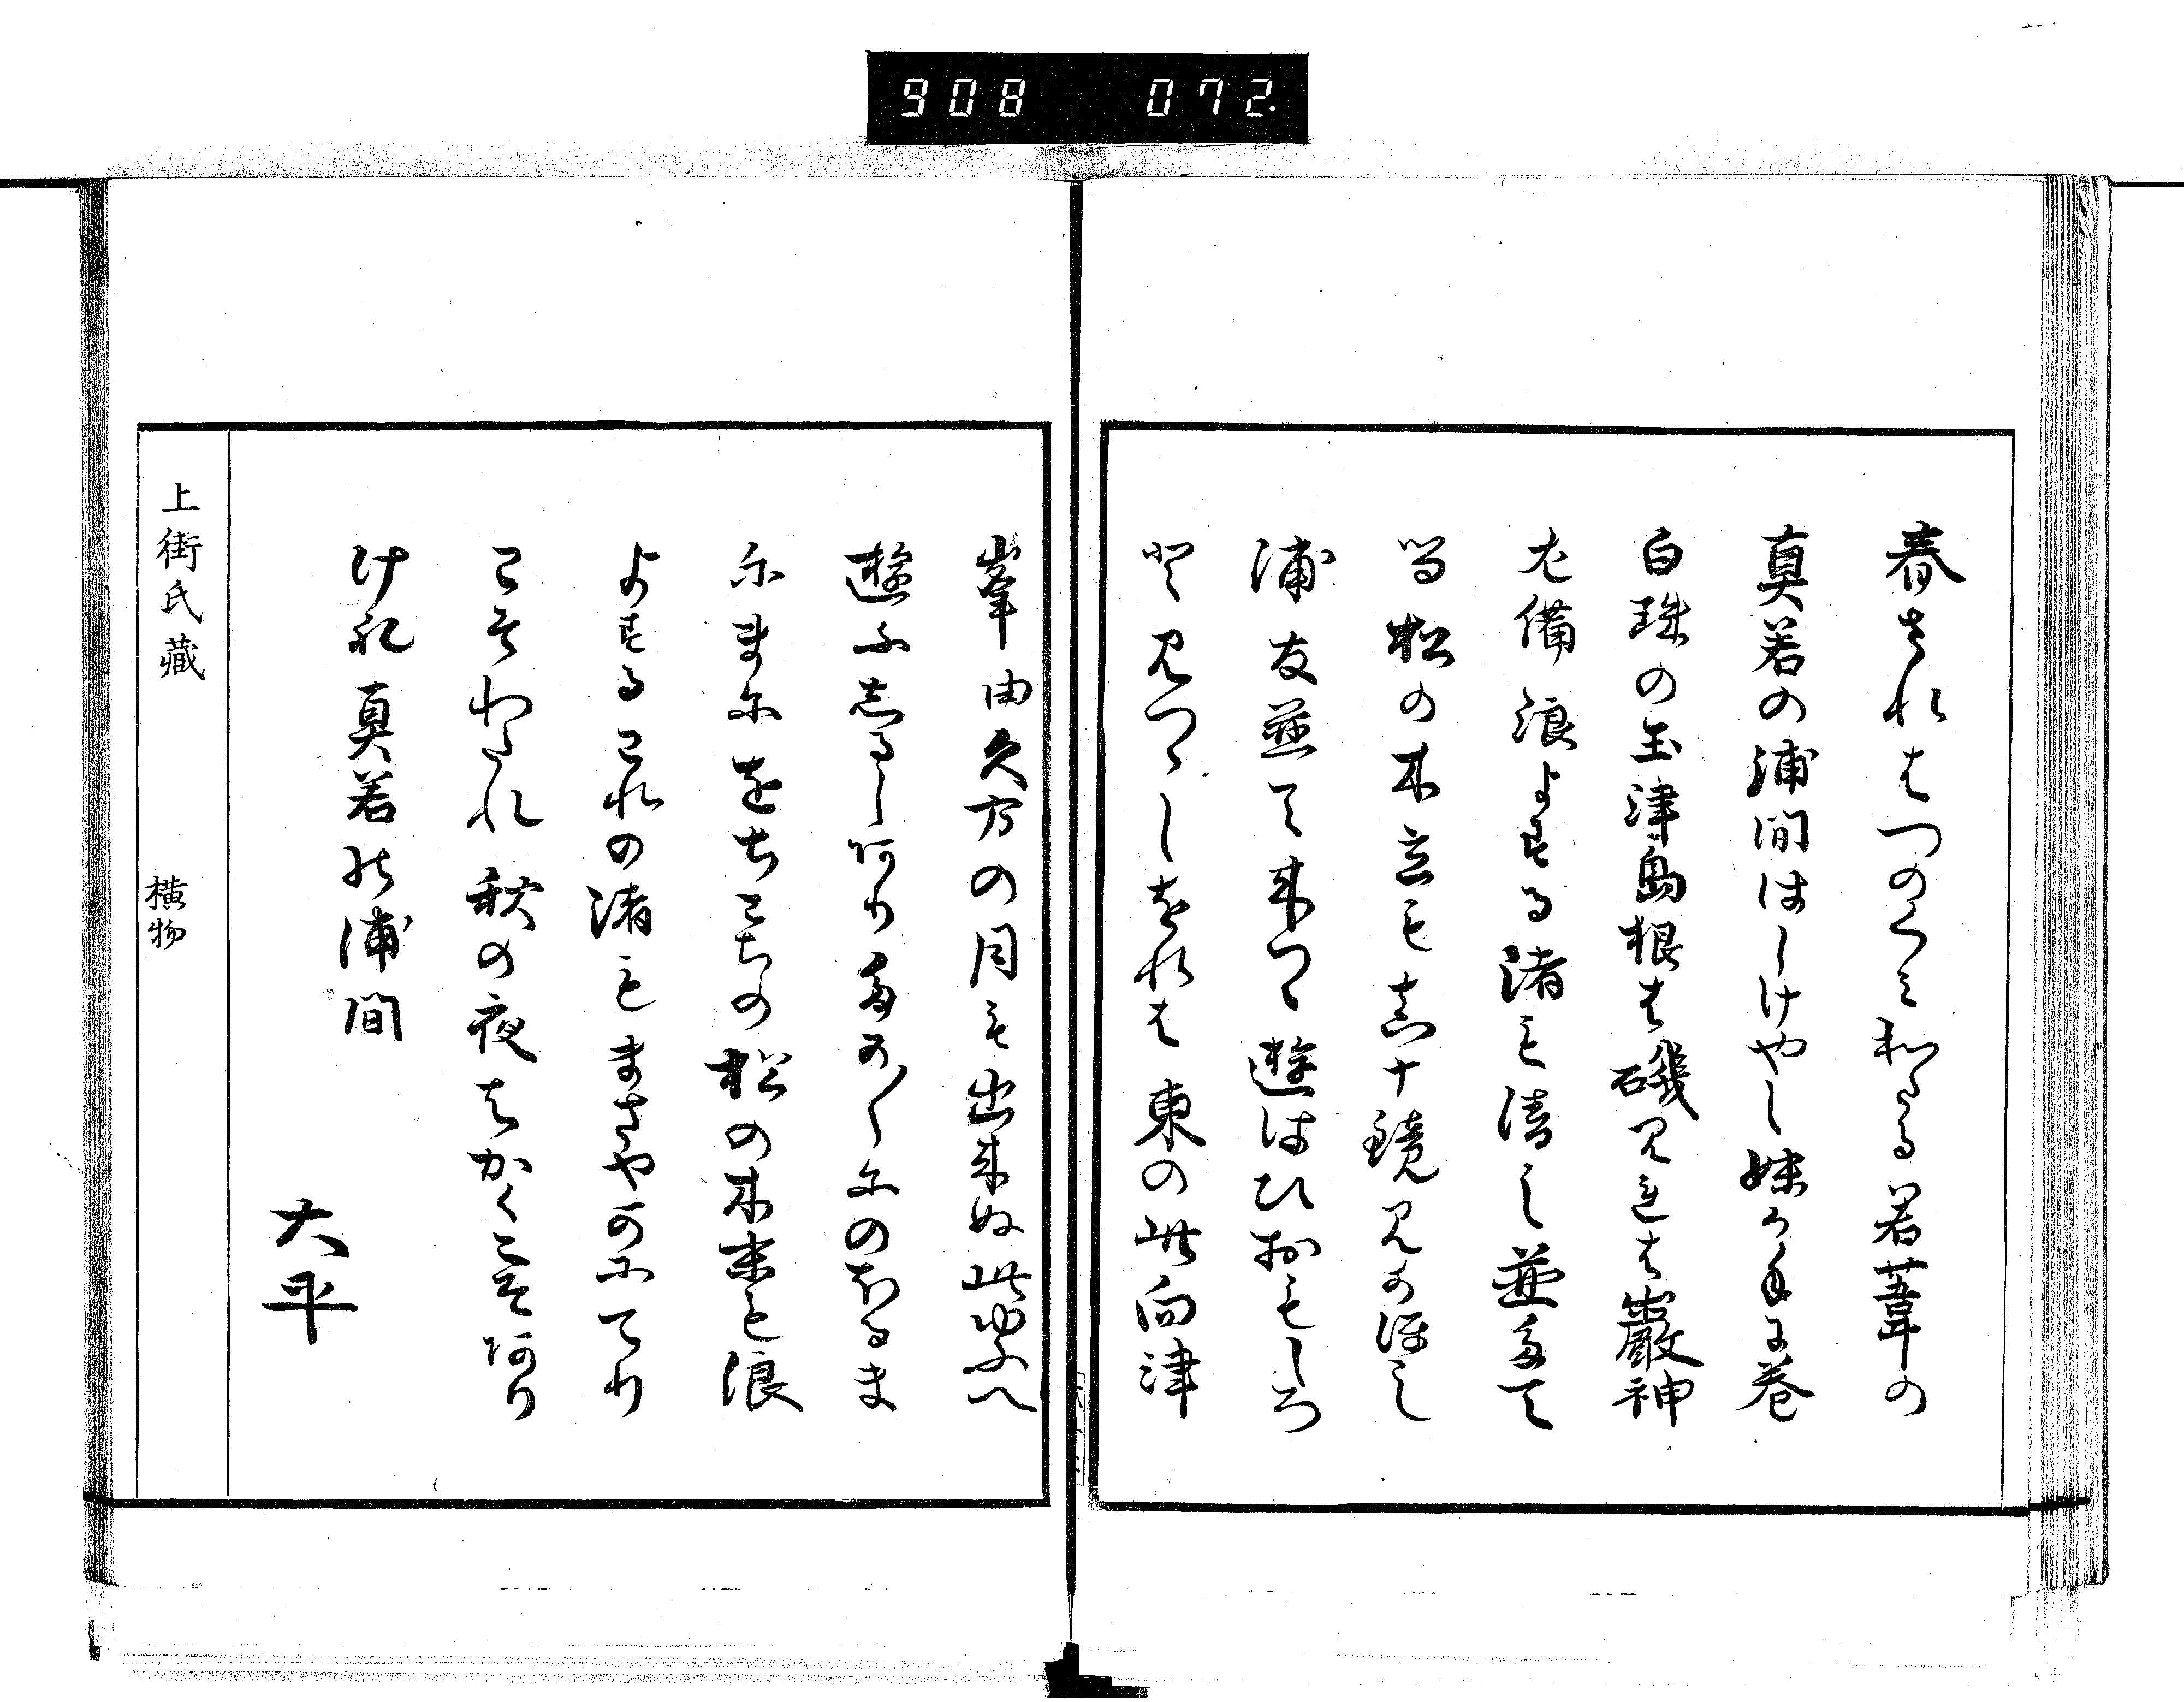 908 072
春されはつのくみわたる若葦の
真若の浦間はしけやし妹か手に巻
白珠の玉津島根は磯見れは巌神
左備浪よする渚も清し並たて
る松の木立も真十鏡見のほし
浦友並て来つゝ遊はひおもしろ
と見つゝしをれは東の此向津
峯由久方の月も出来ぬ此ゆふへ
遊ふしるしありたかくにのほるま
にまにをちこちの松の木末も浪
よするこれの渚もまさやかにてり
こそわたれ秋の夜はかくこそあり
けれ真若の浦間
大平
上街氏藏
横物